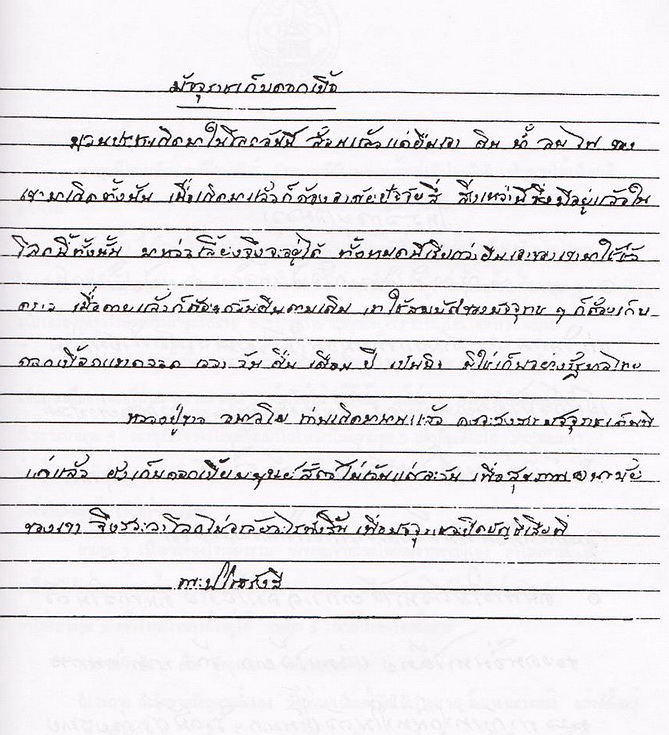 มัจจุราชเก็บดอกเบี้ย
มวลประชาเกิดมาในโลกอันนี้ ล้วนแล้วแต่ยืมเอา ดิน น้ำ ลม ไฟ ของ
เขามาเกิดทั้งนั้น เมื่อเกิดมาแล้วก็ต้องอาศัยปัจจัยสี่ สิ่งเหล่านี้ซึ่งมีอยู่แล้วใน
โลกนี้ทั้งนั้น มาหล่อเลี้ยงจึงจะอยู่ได้ ทั้งหมดนี้เรียกว่ายืมเอาของเขามาใช้ชั่ว
คราว เมื่อตายแล้วก็ต้องกลับคืนตามเดิม เอาใช้สมบัติของมัจจุราช ๆ ก็ต้องเก็บ
ดอกเบี้ยตลอด เวลา วัน คืน เดือน ปี เป็นนิจ มิใช่เก็บอย่างรัฐบาลไทย
หลวงปู่ขาว อนาลโย ท่านเกิดมานานแล้ว มัจจุราชเต็มที
แก่แล้ว ยังเก็บดอกเบี้ยมนุษย์สัตว์ไม่เว้นแต่ละวัน เพื่อสุขภาพอนามัย
ของเขา จึงสละโลกไม่อาลัยอะไรทั้งสิ้น เพื่อมัจจุราชจะปิดบัญชีเสียที